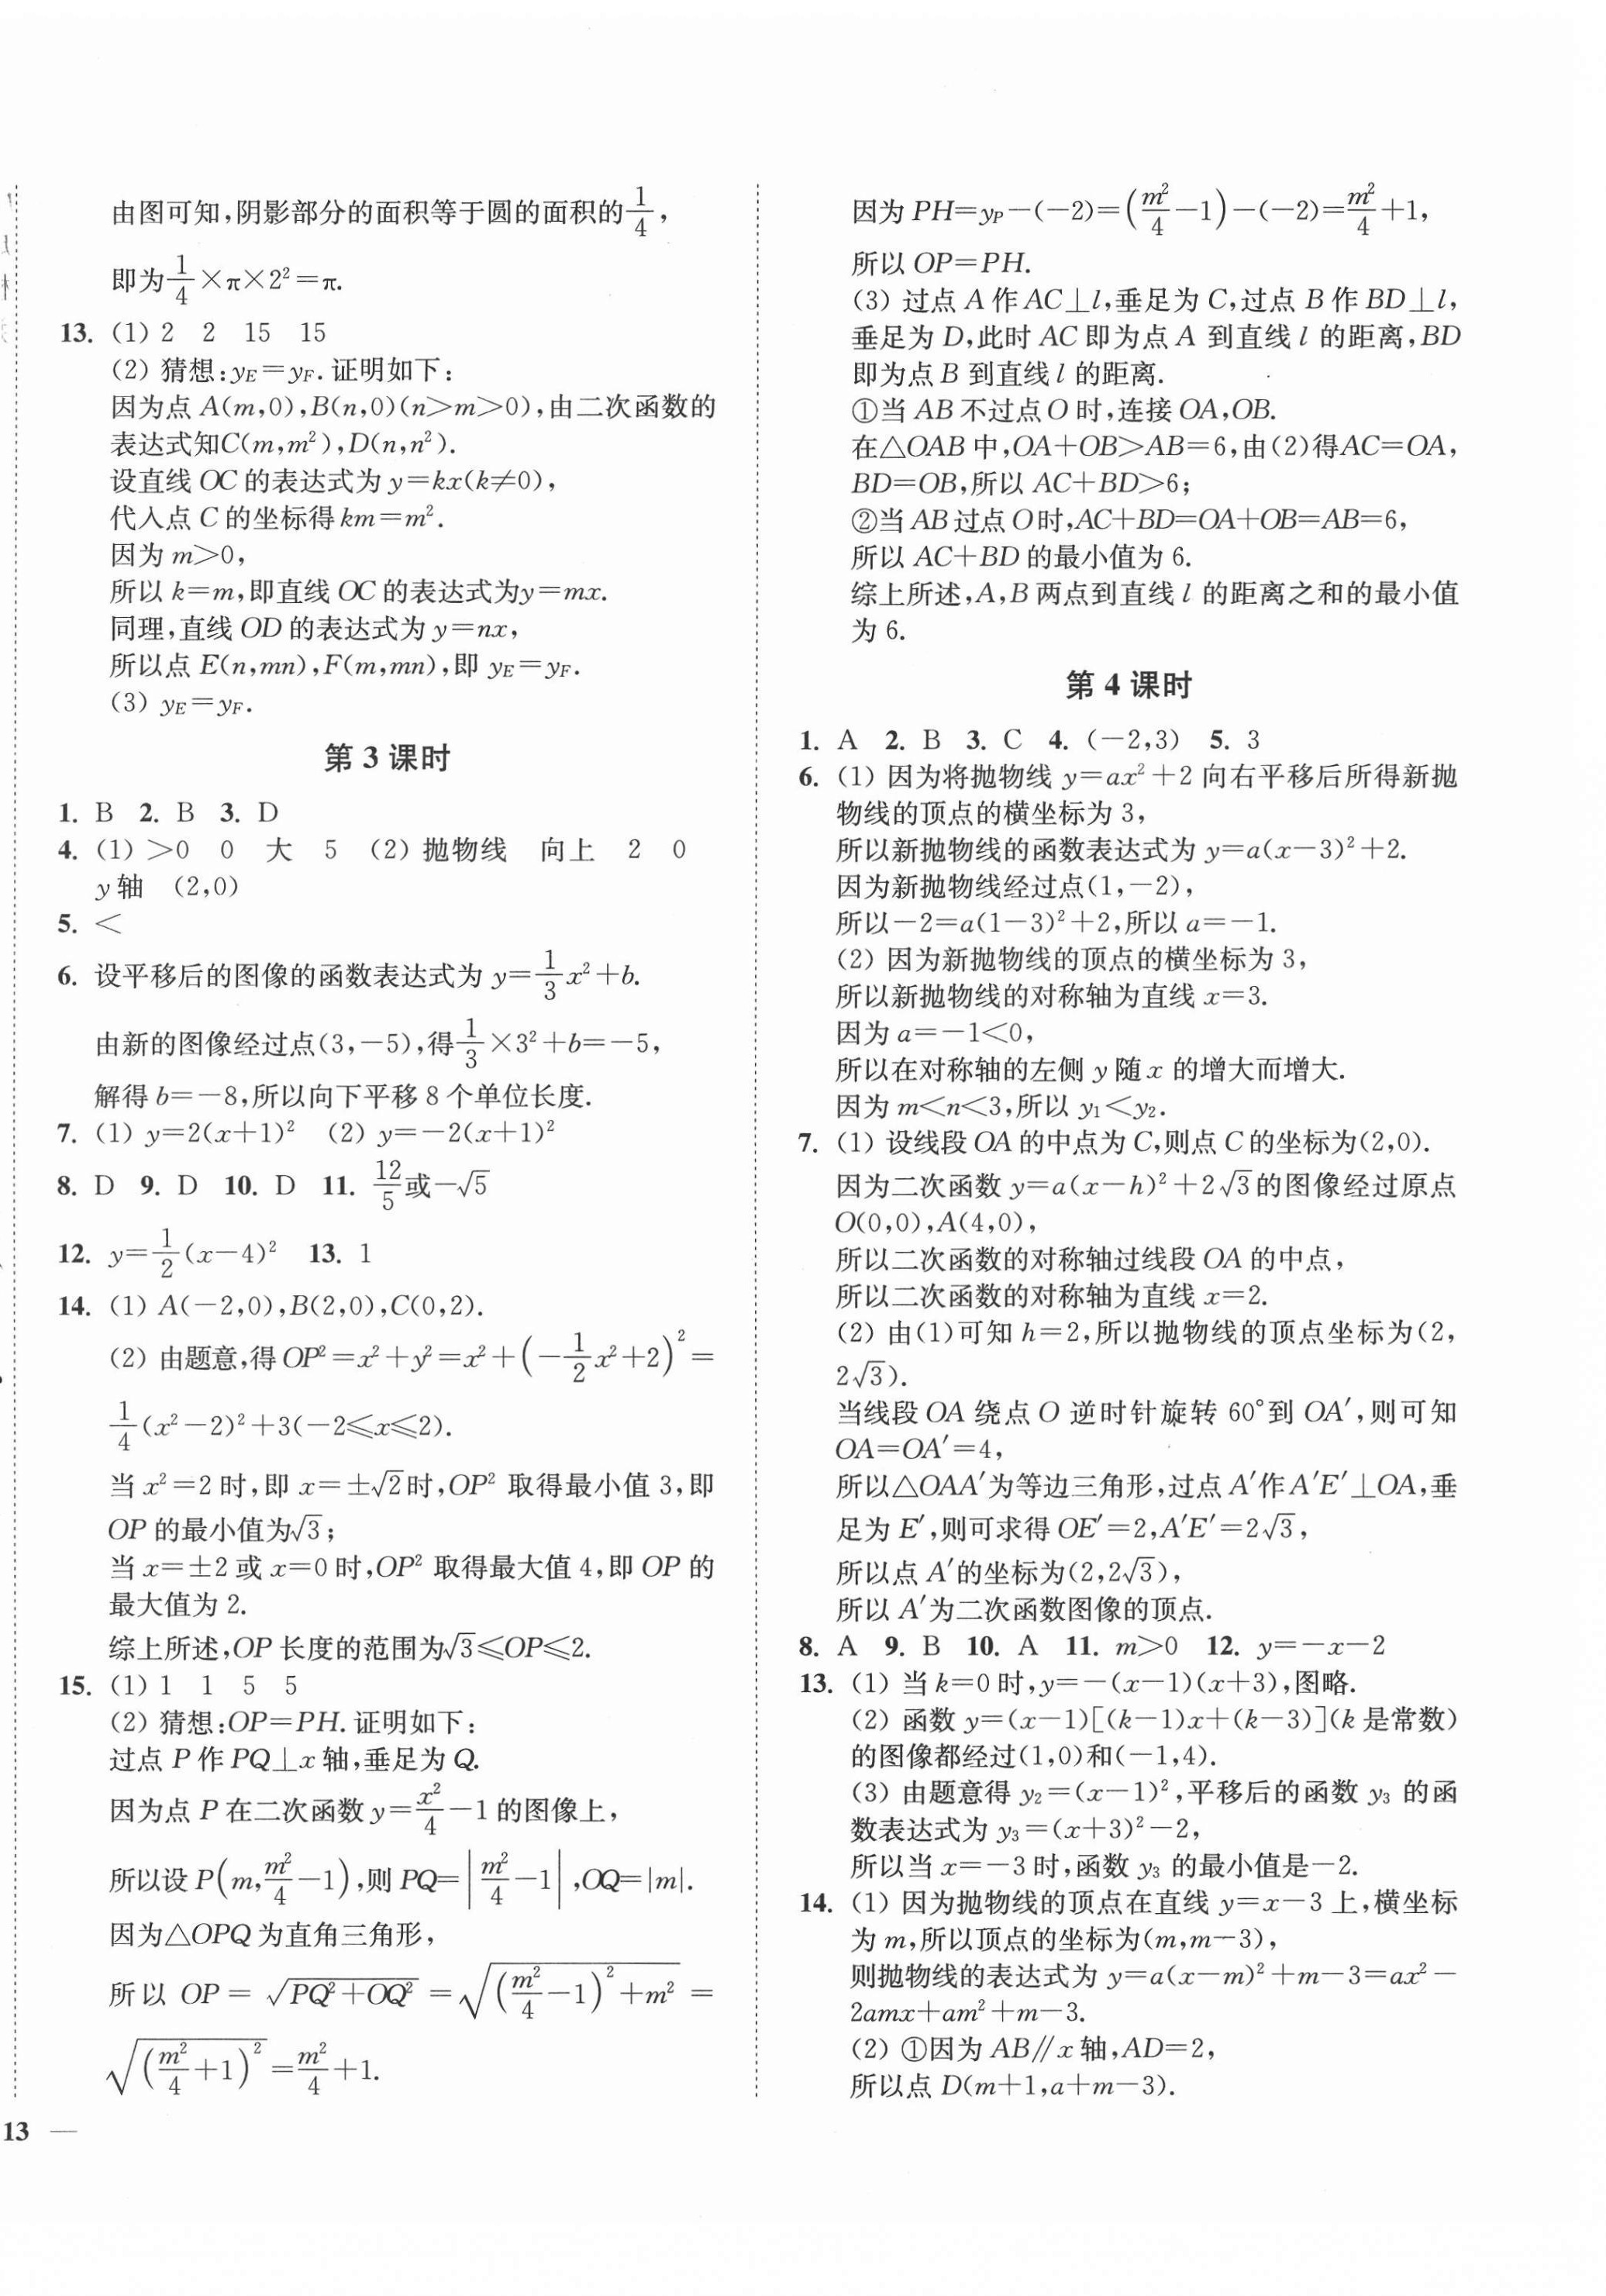 由图可知,阴影部分的面积等于圆的面积的1/4,
即为1/4×π×2²=π.
13. (1) 2 2 15 15
(2) 猜想:yE=yF.证明如下:
因为点 A(m,0),B(n,0)(n>m>0),由二次函数的
表达式知C(m,m²),D(n,n²).
设直线 OC 的表达式为 y=kx(k≠0),
代入点 C 的坐标得 km=m².
因为 m>0,
所以 k=m,即直线 OC 的表达式为y=mx.
同理,直线 OD 的表达式为 y=nx,
所以点 E(n,mn),F(m,mn),即 yE=yF.
(3) yE=yF.
第 3 课时
1. B 2. B 3. D
4. (1) >0 0 大 5 (2) 抛物线 向上 2 0
y 轴 (2,0)
5. <
6. 设平移后的图像的函数表达式为 y=1/3x²+b.
由新的图像经过点(3,-5),得1/3×3²+b=-5,
解得 b=-8,所以向下平移 8 个单位长度.
7. (1) y=2(x+1)² (2) y=-2(x+1)²
8. D 9. D 10. D 11. 12/5或-√5
12. y=1/2(x-4)² 13. 1
14. (1) A(-2,0),B(2,0),C(0,2).
(2) 由题意,得 OP²=x²+y²=x²+(-1/2x²+2)²=
1/4(x²-2)²+3(-2≤x≤2).
当 x²=2 时,即 x=±√2时,OP² 取得最小值 3,即
OP 的最小值为√3;
当 x=±2 或 x=0 时,OP² 取得最大值 4,即 OP 的
最大值为 2.
综上所述,OP 长度的范围为√3≤OP≤2.
15. (1) 1 1 5 5
(2) 猜想:OP=PH.证明如下:
过点 P 作 PQ⊥x 轴,垂足为 Q.
因为点 P 在二次函数 y=x²/4-1 的图像上,
所以设 P(m,m²/4-1),则 PQ=|m²/4-1|,OQ=|m|.
因为△OPQ 为直角三角形,
所以 OP=√(PQ²+OQ²)=√((m²/4-1)²+m²)=
√((m²/4+1)²)=m²/4+1.
13 —
因为 PH=yP-(-2)=(m²/4-1)-(-2)=m²/4+1,
所以 OP=PH.
(3) 过点 A 作 AC⊥l,垂足为 C,过点 B 作 BD⊥l,
垂足为 D,此时 AC 即为点 A 到直线 l 的距离,BD
即为点 B 到直线 l 的距离.
①当 AB 不过点 O 时,连接 OA,OB.
在△OAB 中,OA+OB>AB=6,由(2)得AC=OA,
BD=OB,所以 AC+BD>6;
②当 AB 过点 O 时,AC+BD=OA+OB=AB=6,
所以 AC+BD 的最小值为 6.
综上所述,A,B 两点到直线 l 的距离之和的最小值
为 6.
第 4 课时
1. A 2. B 3. C 4. (-2,3) 5. 3
6. (1) 因为将抛物线 y=ax²+2 向右平移后所得新抛
物线的顶点的横坐标为 3,
所以新抛物线的函数表达式为 y=a(x-3)²+2.
因为新抛物线经过点(1,-2),
所以-2=a(1-3)²+2,所以 a=-1.
(2) 因为新抛物线的顶点的横坐标为 3,
所以新抛物线的对称轴为直线 x=3.
因为 a=-1<0,
所以在对称轴的左侧 y 随 x 的增大而增大.
因为 m<n<3,所以 y₁<y₂.
7. (1) 设线段 OA 的中点为 C,则点 C 的坐标为(2,0).
因为二次函数 y=a(x-h)²+2√3的图像经过原点
O(0,0),A(4,0),
所以二次函数的对称轴过线段 OA 的中点,
所以二次函数的对称轴为直线 x=2.
(2) 由(1)可知 h=2,所以抛物线的顶点坐标为(2,
2√3).
当线段 OA 绕点 O 逆时针旋转 60°到 OA′,则可知
OA=OA′=4,
所以△OAA′为等边三角形,过点 A′作 A′E′⊥OA,垂
足为 E′,则可求得 OE′=2,A′E′=2√3,
所以点 A′的坐标为(2,2√3),
所以 A′为二次函数图像的顶点.
8. A 9. B 10. A 11. m>0 12. y=-x-2
13. (1) 当 k=0 时,y=-(x-1)(x+3),图略.
(2) 函数 y=(x-1)[(k-1)x+(k-3)](k 是常数)
的图像都经过(1,0)和(-1,4).
(3) 由题意得 y₂=(x-1)²,平移后的函数 y₃ 的函
数表达式为 y₃=(x+3)²-2,
所以当 x=-3 时,函数 y₃ 的最小值是-2.
14. (1) 因为抛物线的顶点在直线 y=x-3 上,横坐标
为 m,所以顶点的坐标为(m,m-3),
则抛物线的表达式为 y=a(x-m)²+m-3=ax²-
2amx+am²+m-3.
(2) ①因为 AB∥x 轴,AD=2,
所以点 D(m+1,a+m-3).